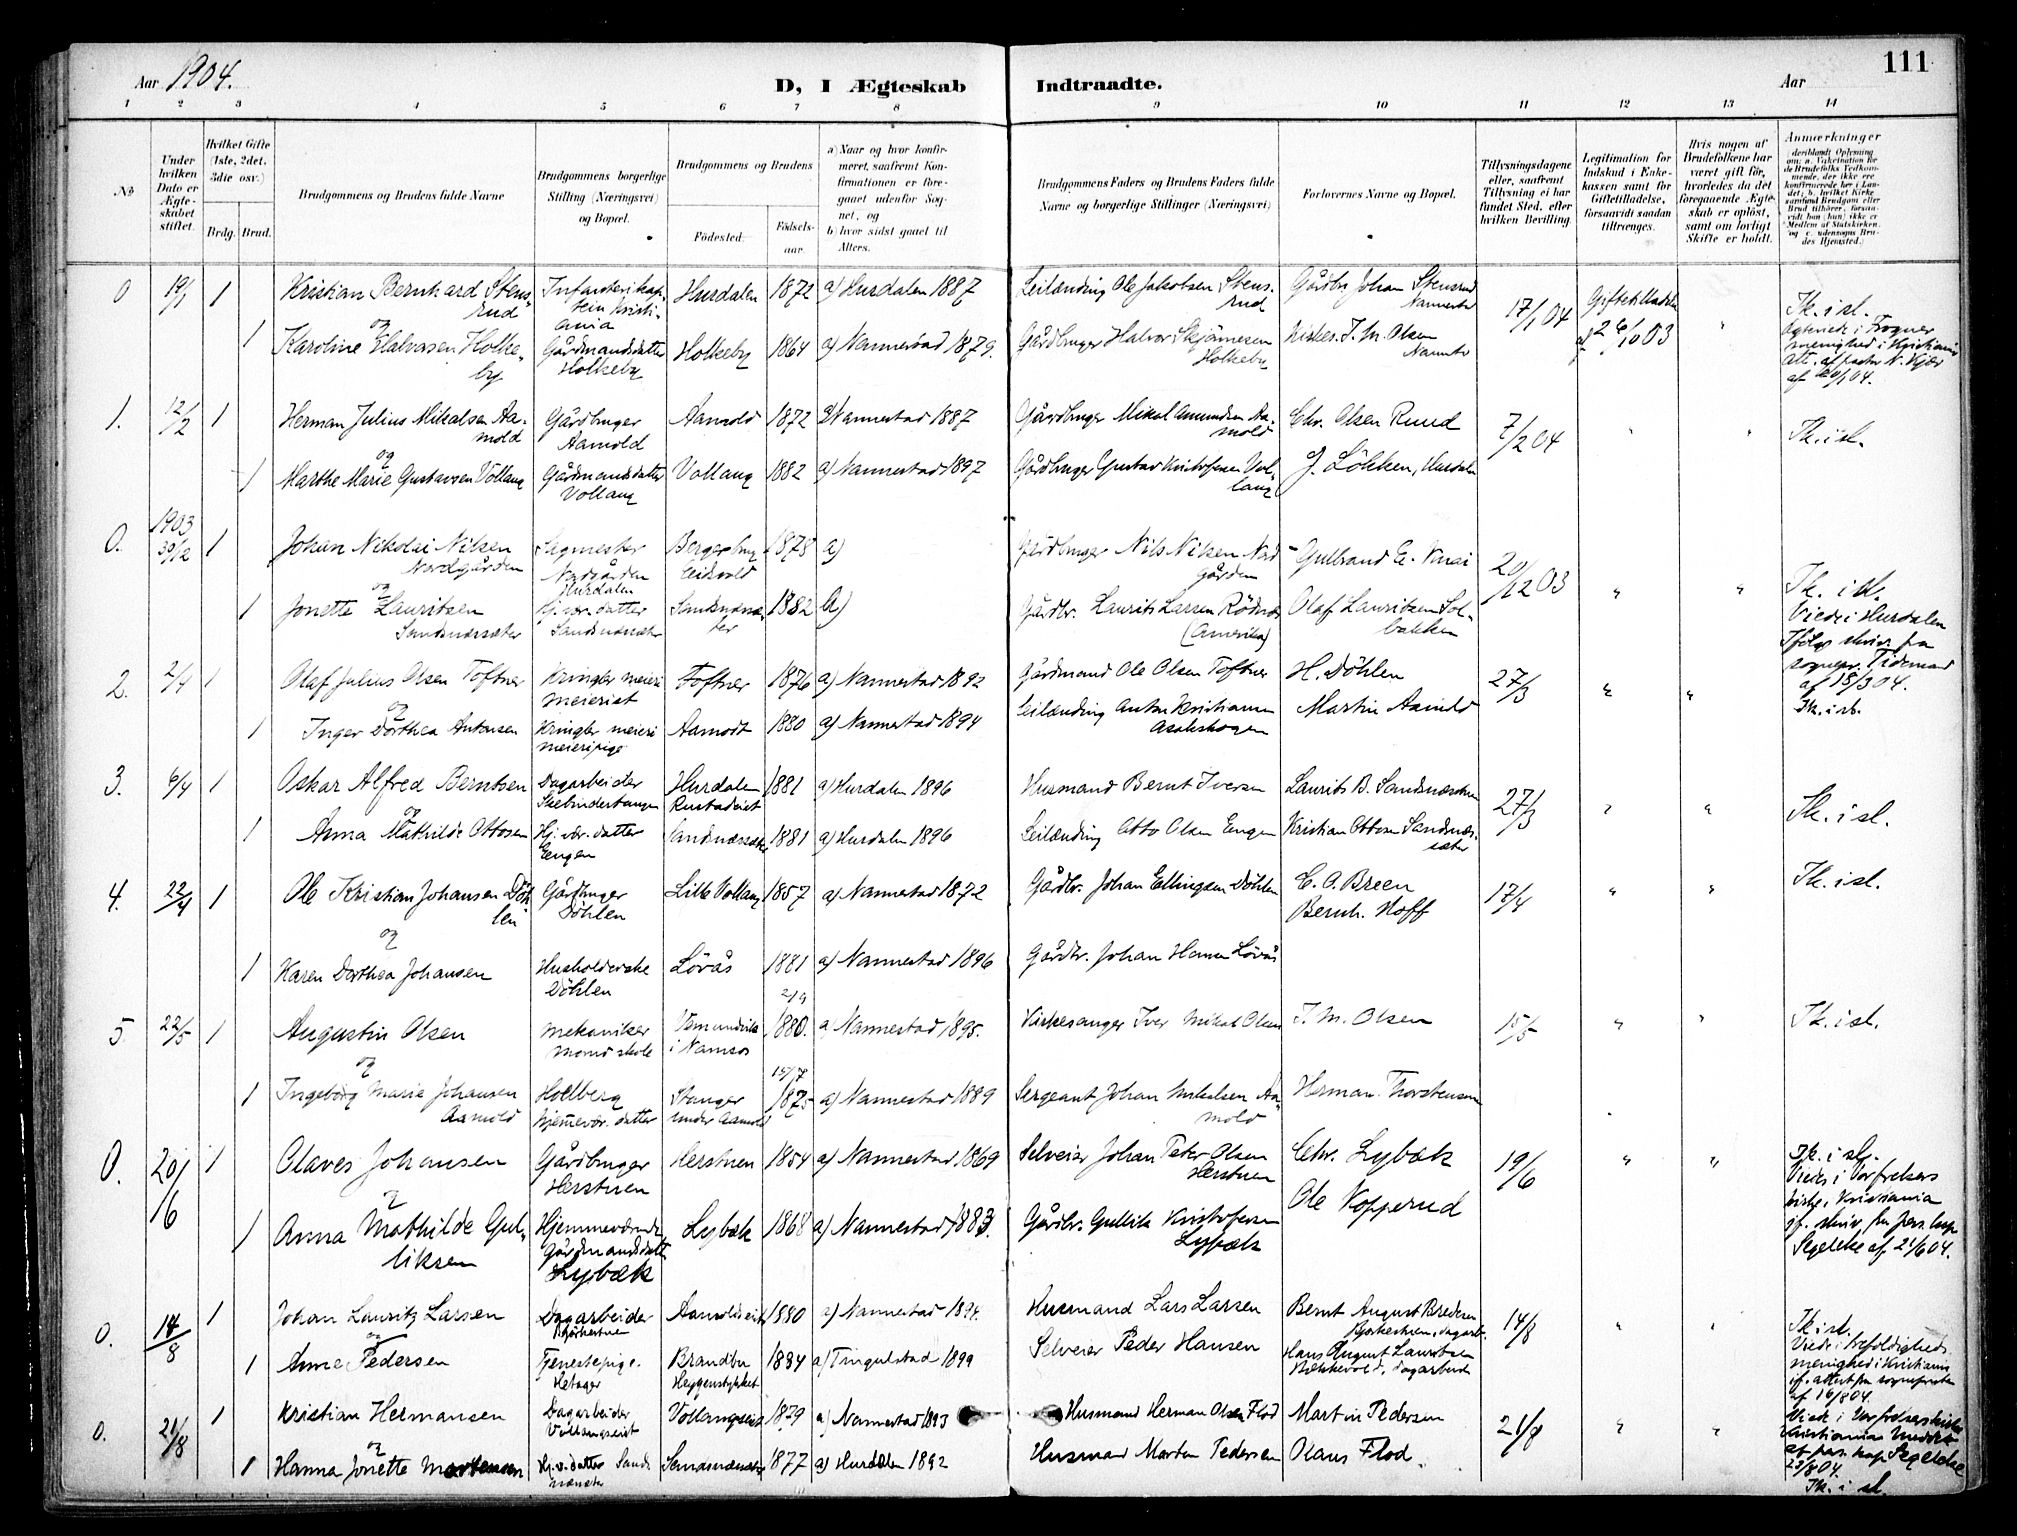 Aar 1904.
D, I Ægteskab Indtraadte.
Aar
111
1 2 3 4 5 6 7 8 9 10 11 12 13 14
No
Under hvilken Dato er Ægteskabet stiftet.
Hvilket Gifte (1ste, 2det, 3die osv.)
Brdg. Brud.
Brudgommens og Brudens fulde Navne
Brudgommens borgerlige Stilling (Næringsvei) og Bopæl.
Brudgommens og Brudens
Födested. Födsels-aar.
a) Naar og hvor konfirmeret, saafremt Konfirmationen er foregaaet udenför Sognet, og
b) hvor sidst gaaet til Alters.
Brudgommens Faders og Brudens Faders fulde Navne og borgerlige Stillinger (Næringsvei)
Forlovernes Navne og Bopæl.
Tillysningsdagene eller, saafremt Tillysning ei har fundet Sted, efter hvilken Bevilling.
Legitimation for Indskud i Enkekassen samt for Giftetilladelse, forsaavidt saadan tiltrænges.
Hvis nogen af Brudefolkene har været gift för, hvorledes da det foregaaende Ægteskab er oplöst, samt om lovligt Skifte er holdt.
Anmærkninger
0 19/1 1 Kristian Bernhard Stensrud Infanterikaptein Kristiania Hurdalen 1872 a) Hurdalen 1887 Leilænding Ole Jakobsen Stensrud Gårdbr Johan Stensrud Nannestad 17/1 04 Giftetilladelse af 26/10 03 " Tk. i sl.
og
1 Karoline Halvorsen Holkeby Gårdmandsdatter Holkeby Holkeby 1864 a) Nannestad 1879. Gårdbruger Halvor Holkeby Kirkes. J. M. Olsen menighed i Kristiania
1. 12/2 1 Herman Julius Mikalsen Aamold Gårdbruger Aamold Aamold 1872 a) Nannestad 1887 Gårdbruger Mikal Amundsen Aamold Chr. Olsen Ruud 7/2 04 " " Tk. i sl.
og
1 Marthe Marie Gustavsen Vollaug Gårdmandsdatter Vollaug Vollaug 1882 a) Nannestad 1897 Gårdbruger Gustav Kristofersen Vollaug J. Lökken, Hurdalen
0. 1903 30/12 1 Johan Nikolai Nilsen Nordgården Sagmester Nordgården Hurdalen Eidsvold 1878 a) Gårdbruger Nils Nilsen Nordgården Gulbrand E. 20/12 03 " " Tk. i sl.
og
1 Jonette Lauritsen Sandsnæssæter Hj.vær. datter Sandsnæssæter Sandsnæssæter 1882 a) Gårdbr. Laurits Larsen (Amerika) Olaf Lauritsen Solbakken Viede i Hurdalen ifölge skriv. fra sognepr. Tidemand af 18/3 04. Tk. i sl.
2. 2/4 1 Olaf Julius Olsen Toftner Kringler meieri meierist Toftner 1876 a) Nannestad 1892 Gårdmand Ole Olsen Toftner H. Döhlen 27/3 " "
og
1 Inger Dorthea Antonsen Kringler meieri meieripige Aamodt 1880 a) Nannestad 1894 Leilænding Anton Kristiansen Martin Aamold
3. 6/4 1 Oskar Alfred Berntsen Dagarbeider Hurdalen 1881 a) Hurdalen 1896 Husmand Bernt Iversen Laurits B. Sandsnæssæter 27/3 " " Tk. i sl.
og
1 Anna Mathilde Ottosen Hj. vær. datter Engen Sandsnæssæter 1881 a) Hurdalen 1896 Leilænding Otto Olsen Engen Kristian Ottosen Sandsnæssæter
4. 22/4 1 Ole Kristian Johansen Döhlen Gårdbruger Döhlen Lille Vollaug 1857 a) Nannestad 1872 Gårdbr. Johan Ellingsen Döhlen C. O. Breen Bernh. Hoff 17/4 " " Tk. i sl.
og
1 Karen Dorthea Johansen Husholderske Döhlen Lövås 1881 a) Nannestad 1896 Gårdbr. Johan Hansen Lövås
5 22/5 1 Augustin Olsen Mekaniker i Namsos 2/9 1880. a) Nannestad 1895. Kirkesanger Iver Mikal Olsen J. M. Olsen 15/5 " " Tk. i sl.
og
1 Ingeborg Marie Johansen Aamold Holtberg hjemmevær. datter Stanger under Aamold 15/7 1875 a) Nannestad 1889 Sergeant Johan Mikalsen Aamold Herman Thorstensen
0. 20/6 1 Olaves Johansen Gårdbruger Herstuen Herstuen 1854 a) Nannestad 1869 Selveier Johan Peter Olsen Herstuen Chr. Lybæk 19/6 " " Tk. i sl.
og
1 Anna Mathilde Gulliksen Hjemmeværende gårdmandsdatter Lybæk Lybæk 1868 a) Nannestad 1883. Gårdbr. Gullik Kristofersen Lybæk Ole Kopperud Viede i Vorfrelsers kirke, Kristiania af 21/6 04.
0. 14/8 1 Johan Lauritz Larsen Dagarbeider 1880 a) Nannestad 1894. Husmand Lars Larsen Bernt August Bredesen 14/8 " " Tk. i sl.
og
1 Anne Pedersen Tjenestepige Brandbu 1884 a) Tingelstad 1899 Selveier Peder Hansen Hans August Lauritsen dagarbeider Viede i Trefoldigheds menighed i Kristiania af 16/8 04.
0. 21/8 1 Kristian Hermansen Dagarbeider Vollaugseiet Vollaugseiet 1879 a) Nannestad 1893 Husmand Herman Olsen Flod Martin Pedersen 21/8 " " Viede i Vorfrelserskirke
og
1 Hanna Jonette Mortensen Hj.v. datter Sandsnæssæter Sandsnæssæter 1877 a) Hurdalen 1892 Husmand Morten Pedersen Olaus Flod. 23/8 04. Tk. i sl.